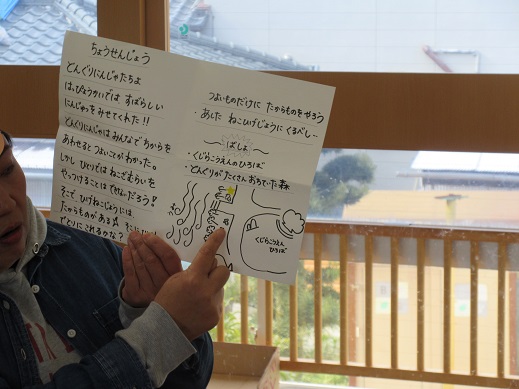 ちょうせんじょう
どんぐりにんじゃたちよ
はっぴょうかいでは すばらしい
にんじゅつを みせてくれた!!
どんぐりにんじゃはみんなでちからを
あわせると つよいことが わかった。
しかし ひとりでは ねこざむらいを
やっつけることは できないだろう!
そこで、ひげねこじょうには
たからものがある
とりにこれるかな?
つよいものだけに たからものをやろう
・あした ねこひげじょうに くるべし〜
ばしょ
・くじらこうえんのひろば
・どんぐりが たくさん おちていた森
くじらこうえん
ひろば